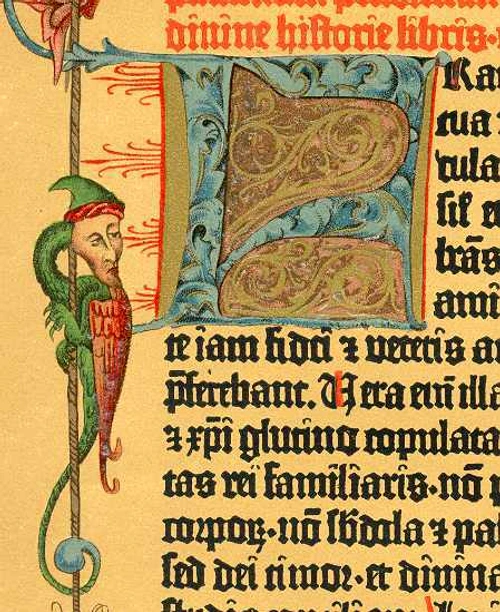 diuine historie libris·
FRa
tua
cula
sil' e
brās
ami
te iam fidei ⁊ veteris a
p̄ferebant. Vera eni̅ illa
⁊ xp̄i glutino copulata
tas rei familiaris·nō
corpoꝝ·nō sb̄dola ⁊ pa
sed dei timor·et diuina